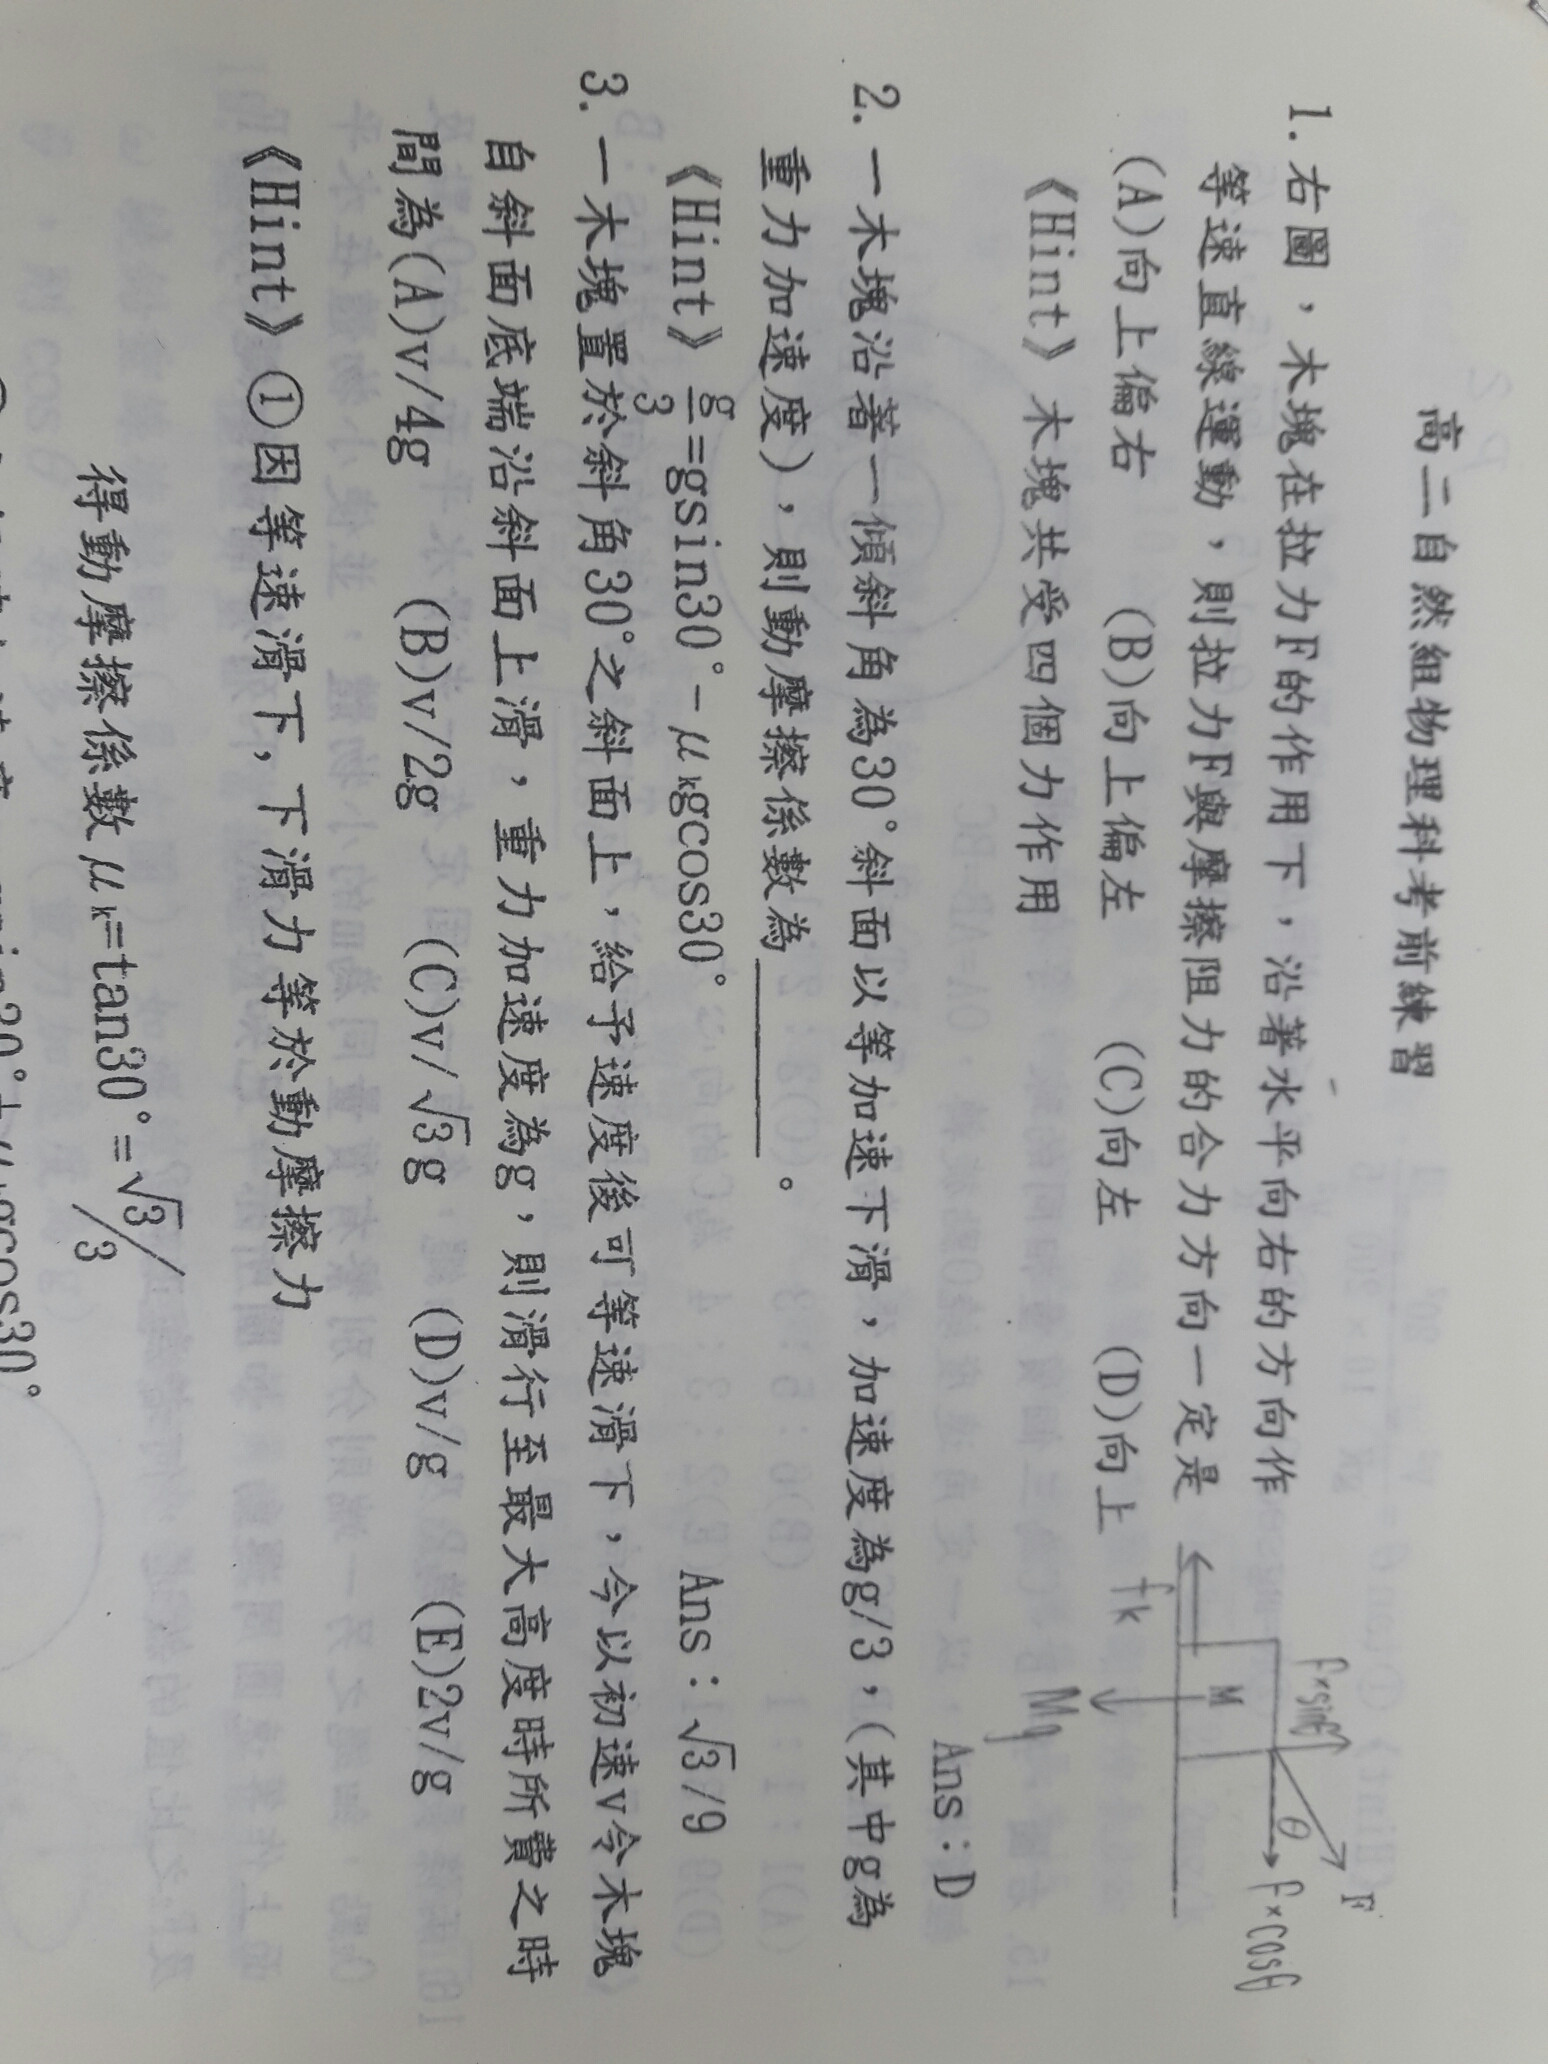 高二自然組物理科考前練習
1. 右圖，木塊在拉力F的作用下，沿著水平向右的方向作
等速直線運動，則拉力F與摩擦阻力的合力方向一定是
(A)向上偏右 (B)向上偏左 (C)向左 (D)向上
《Hint》木塊共受四個力作用
Ans：D
F×sinθ
F
θ
F×cosθ
M
fk
Mg
2. 一木塊沿著一傾斜角為30°斜面以等加速下滑，加速度為g/3，(其中g為
重力加速度)，則動摩擦係數為______。
《Hint》g/3=gsin30°－μkgcos30° Ans：√3/9
3. 一木塊置於斜角30°之斜面上，給予速度後可等速滑下，今以初速v令木塊
自斜面底端沿斜面上滑，重力加速度為g，則滑行至最大高度時所費之時
間為(A)v/4g (B)v/2g (C)v/√3g (D)v/g (E)2v/g
《Hint》①因等速滑下，下滑力等於動摩擦力
得動摩擦係數μk=tan30°=√3/3